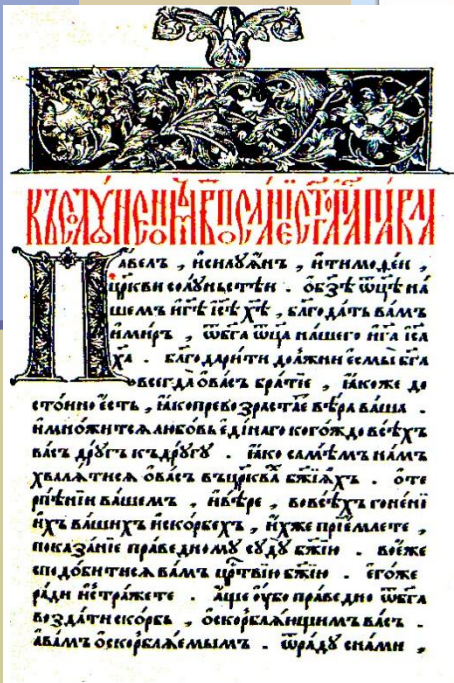 КЪСОЛꙊНЕНѠ́М В҃ ПОСЛА́НІЕ СТ҃ГО АП҃ЛА ПА́ВЛА
Па́велъ , и҆силꙋа́нъ , и҆тимоѳе́й ,
цр҃кви солꙋньстѣ́й . о҆бз҃ѣ ѿц҃ѣ на́
шемъ и҆гд҃ѣ і҆с҃ѣ хс҃ѣ , бл҃года́ть ва́мъ
и҆ми́ръ , ѿбг҃а ѿц҃а на́шего и҆гд҃а і҆с҃а
хс҃а . благодари́ти до́лжни е҆смы̀ бг҃а
всегда̀ ѡ҆ва́съ бра́тїе , ꙗ҆́коже до
сто́йно е҆́сть , ꙗ҆́копревозраста́е вѣ́ра ва́ша .
и҆мно́житсѧ любо́вь е҆ди́наго кого́ждо все́хъ
ва́съ дрꙋ́гъ къдрꙋ́гꙋ . ꙗ҆́ко самѣ́мъ на́мъ
хвали́тисѧ ѡ҆ва́съ въцр҃ква бж҃їѧхъ . о҆те
рпѣ́нїи ва́шемъ , и҆вѣ́ре , вовсѣ́хъ гоне́нї
и҆хъ ва́шихъ и҆ско́рбехъ , и҆́хже прїе́млете ,
показа́нїе пра́ведномꙋ сꙋдꙋ̀ бж҃їю . вое́же
сподо́битисѧ ва́мъ цр҃твїю бж҃їю . е҆го́же
ра́ди и҆стра́жете . а҆́ще ᲂу҆́бо пра́ведно ѿбг҃а
возда́ти ско́рбь , ѡ҆скорблѧ́ющимъ ва́съ .
а҆ва́мъ ѡ҆скорблѧ́емымъ . ѿра́дꙋ сна́ми ,